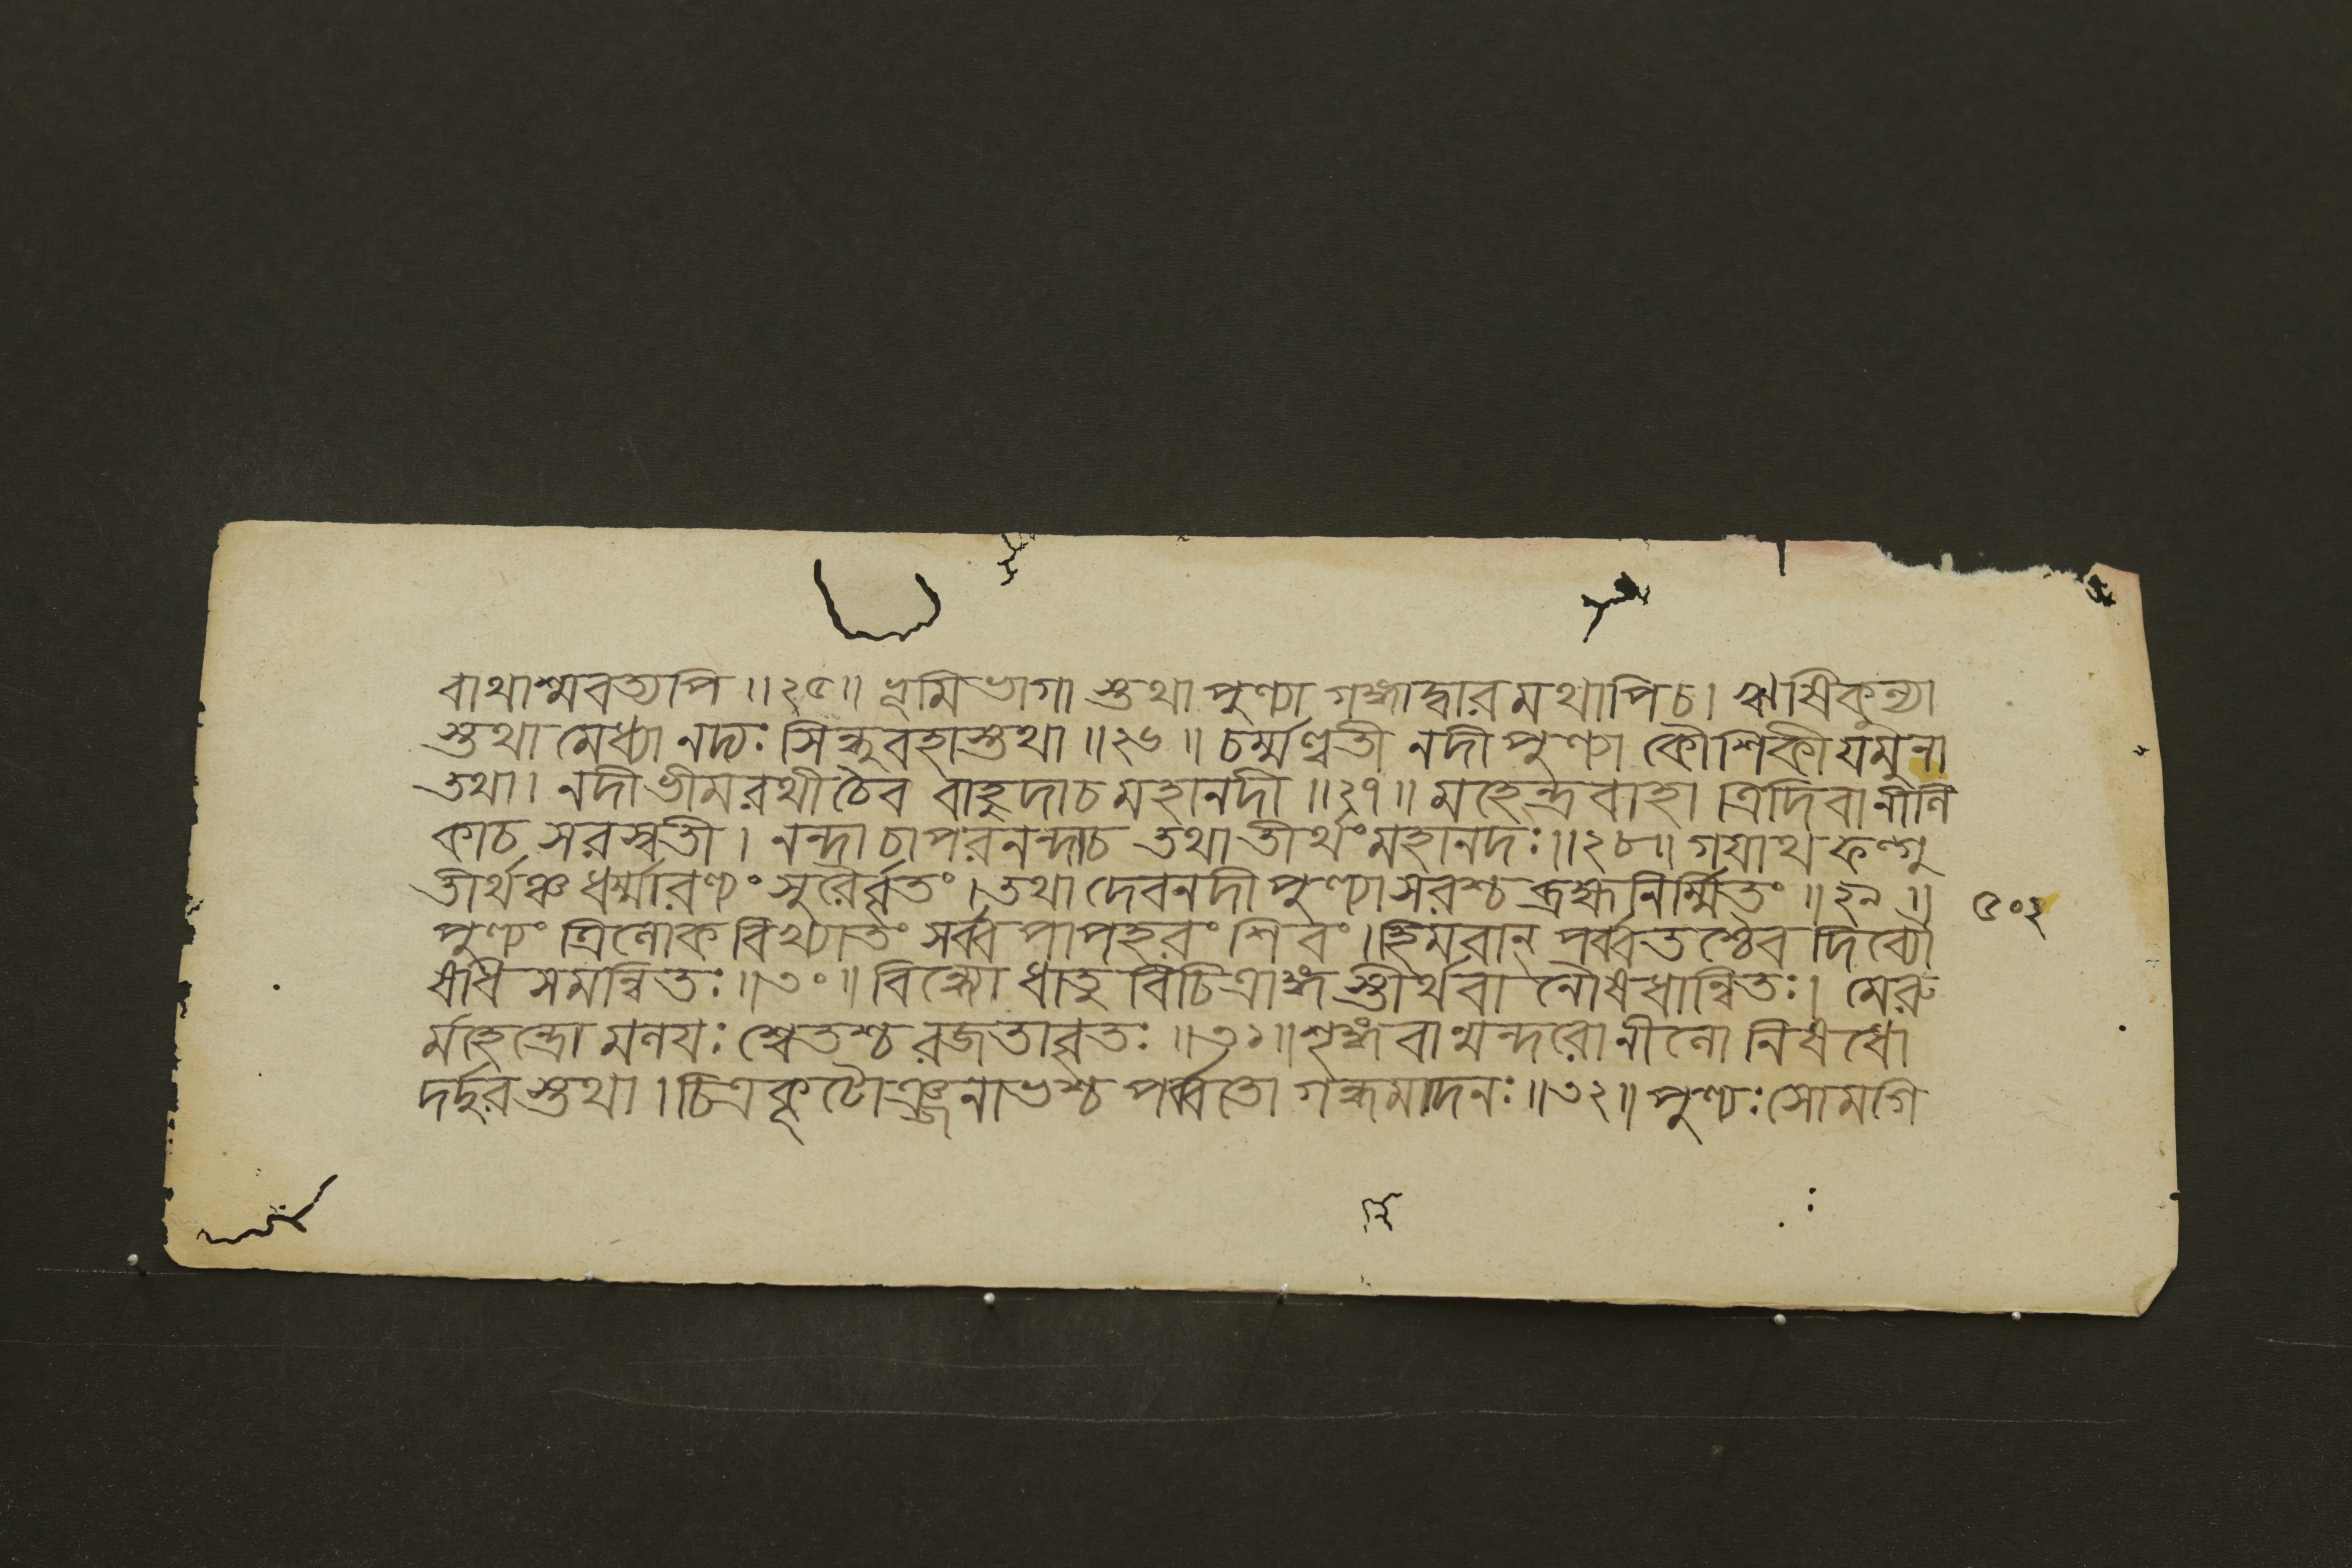 বাথাশ্মবত্যপি ॥২৫॥ ভূমিভাগা স্তুথা পুণ্যা গঙ্গাদ্বারমথাপিচ। ঋষিকুল্যা
স্তুথা মেধ্যা নদ্যঃ সিন্ধুবহাস্তুথা ॥২৬॥ চর্ম্মণ্বতী নদীপুণ্যা কৌশিকীযমুনা
তথা। নদীভীমরথীচৈব বাহুদাচমহানদী ॥২৭॥ মহেন্দ্রবাহা ত্রিদিবানীলি
কাচ সরস্বতী। নন্দ্রাচাপরনন্দাচ তথাতীর্থংমহানদঃ॥২৮॥ গয়াথফল্গু
তীর্থঞ্চধর্ম্মারণ্যং সুরৈর্ব্বৃতং। তথা দেবনদীপুণ্যাসরশ্চব্রহ্মনির্ম্মিতং ॥২৯॥
৫০২
পুণ্যং ত্রিলোক বিখ্যাতং সর্ব্বপাপহরং শিবং। হিমবান্ পর্ব্বতশ্চৈব দিব্যৌ
ষধি সমন্বিতঃ॥৩০॥ বিন্ধ্যো ধাতু বিচিত্রাঙ্গ স্তীর্থবা নৌষধান্বিতঃ। মেরু
র্মহেন্দ্রোমলয়ঃ শ্বেতশ্চ রজতাবৃতঃ ॥৩১॥ শৃঙ্গবান্মন্দরোনীলো নিষধো
দর্দ্দুরস্তুথা। চিত্রকূটৌঞ্জনাভশ্চ পর্ব্বতো গন্ধমাদনঃ॥৩২॥ পুণ্যঃসোমগি